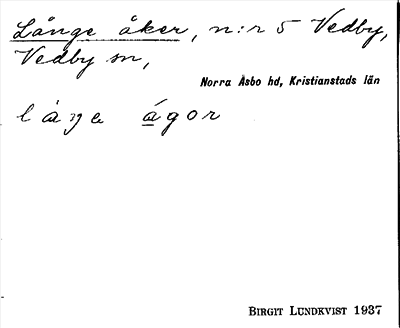 Långe åker, n:r 5 Vedby,
Vedby sn,
Norra Åsbo hd, Kristianstads län
låŋa ágor
BIRGIT LUNDKVIST 1937